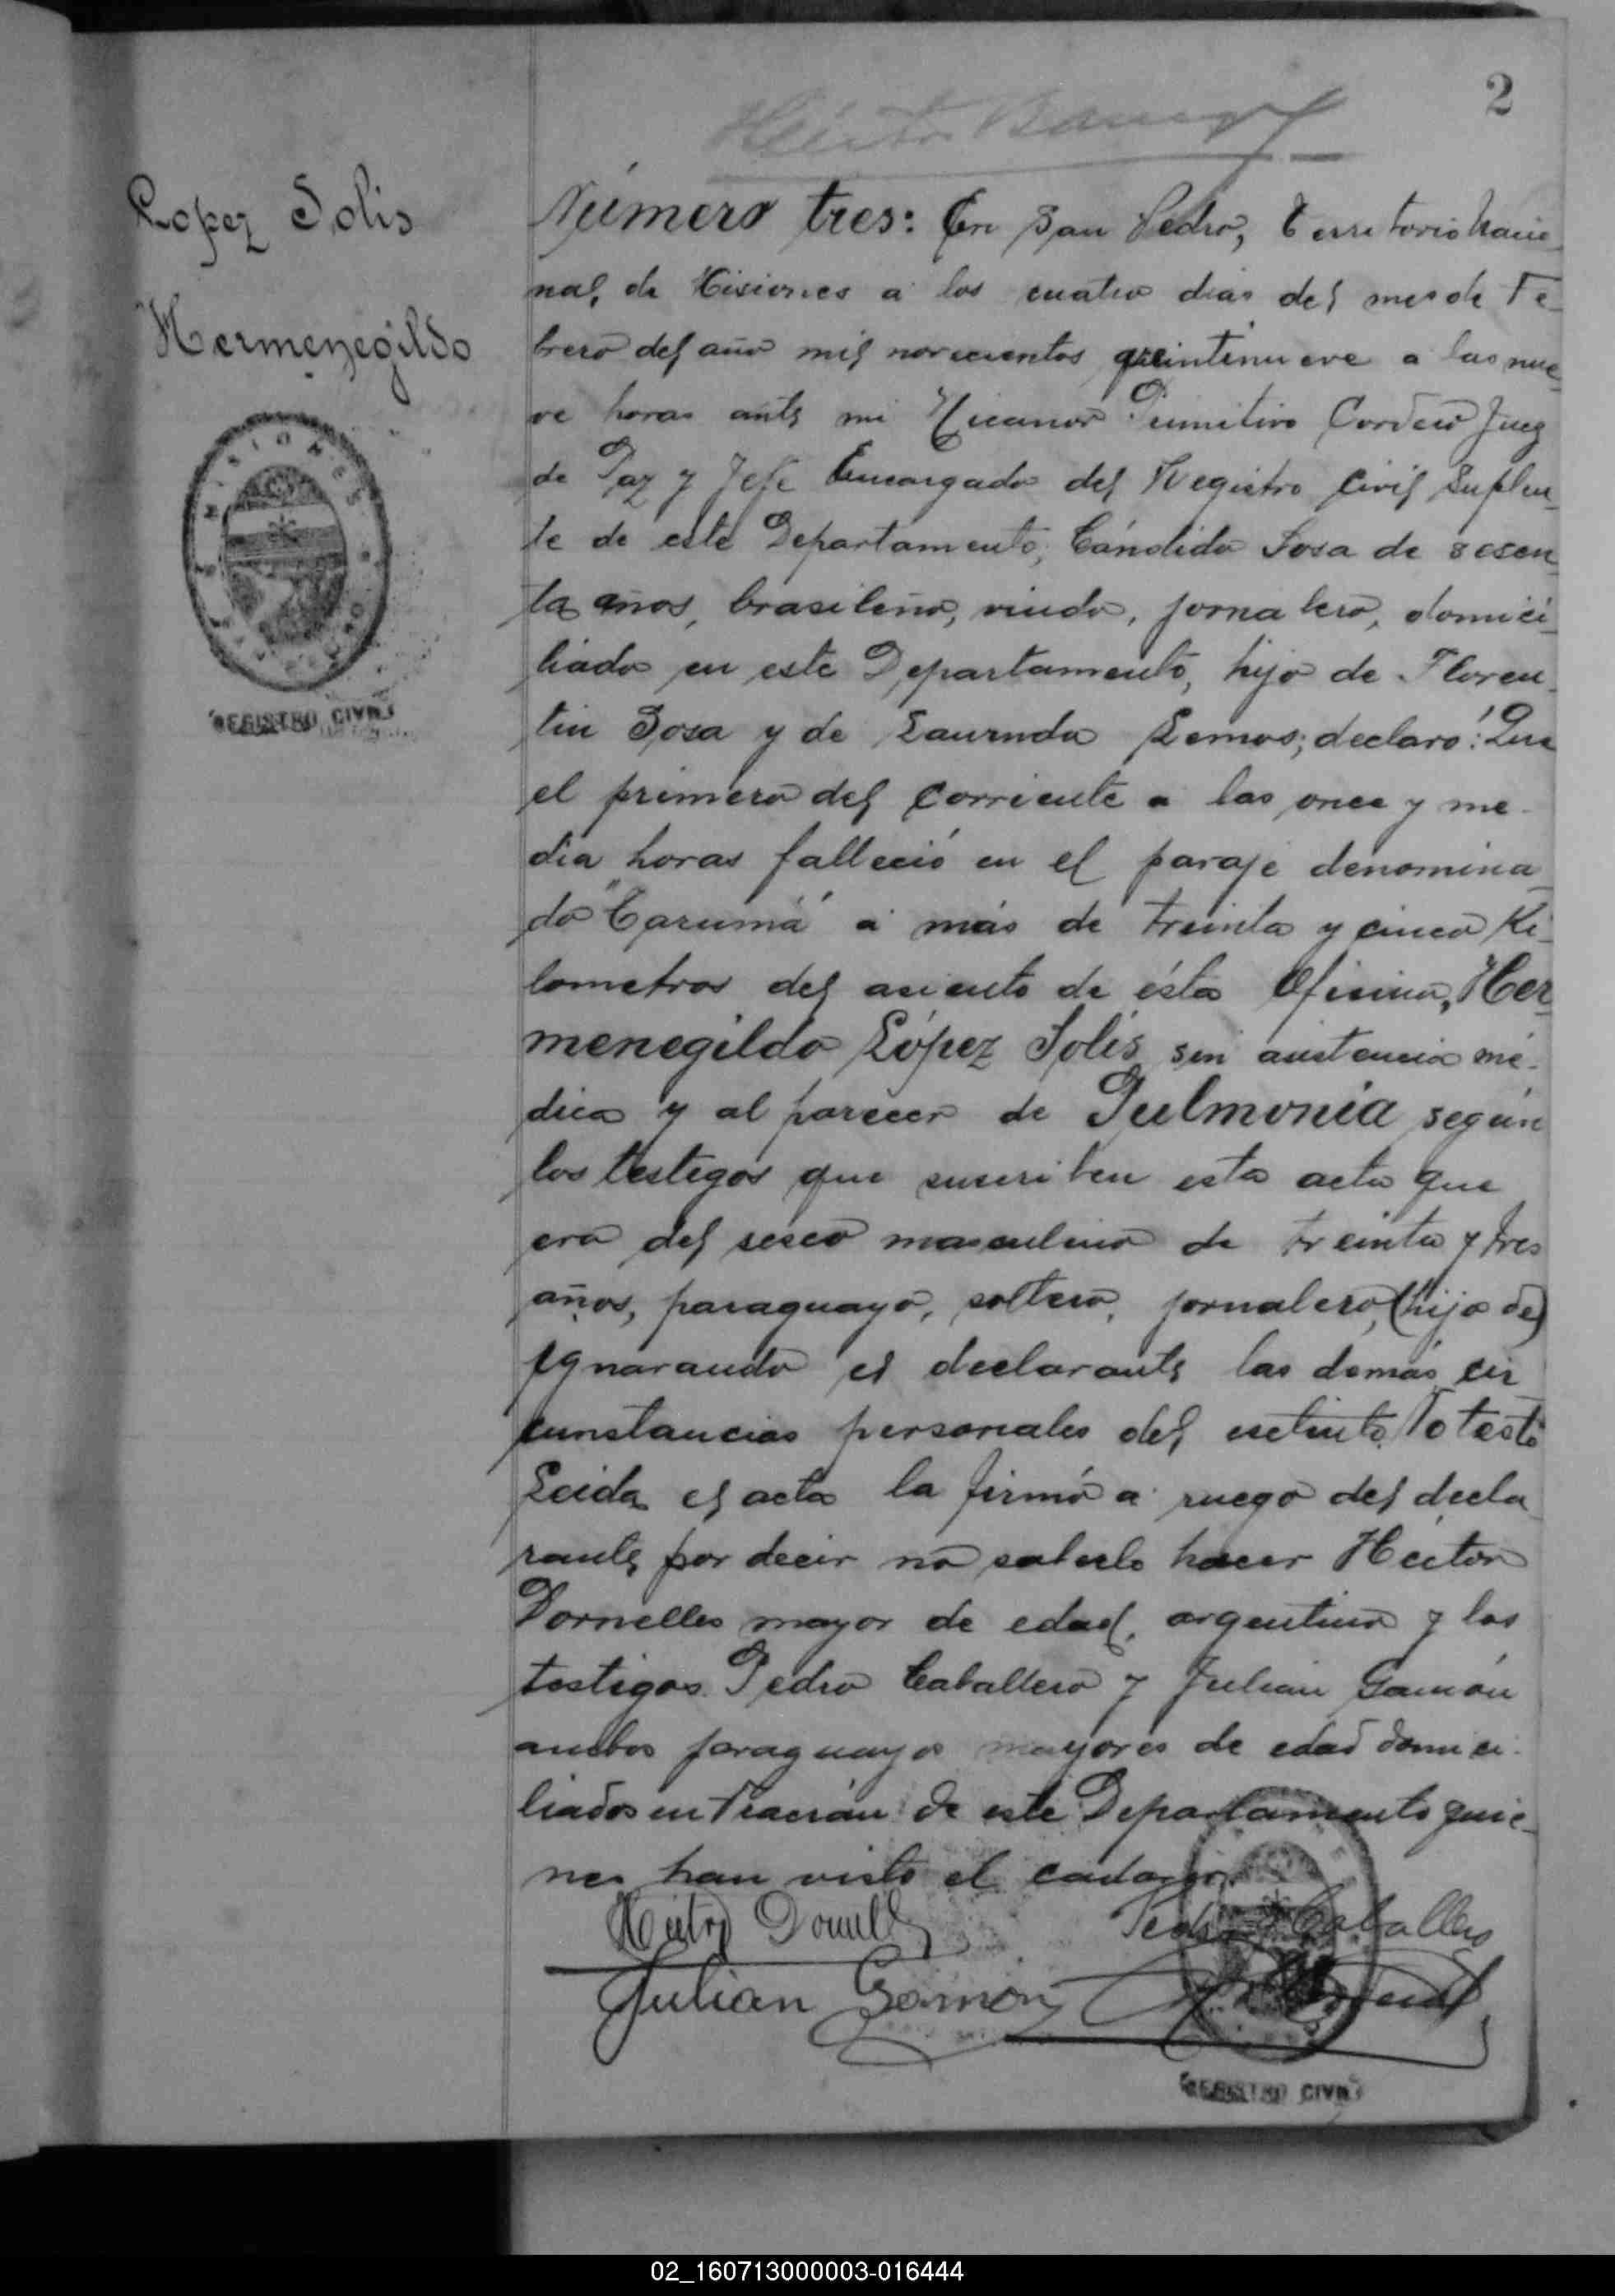 2
Lopez Solis
Hermenegildo
MISIONES
REGISTRO CIVIL
Número tres: En San Pedro, Territorio Nacio_
nal, de Misiones a los cuatro dias del mes de Fe_
brero del año mil novecientos treintinueve a las nue_
ve horas ante mi Nicanor Primitivo Cordero Juez
de Paz y Jefe Encargado del Registro Civil Suplen_
te de este Departamento, Cándido Sosa de sesen_
ta años, brasileño, viudo, jornalero, domici_
liado en este Departamento, hijo de Floren_
tin Sosa y de Lemos; declaró: Que
el primero del corriente a las once y me_
dia horas falleció en el paraje denomina_
do "Tarumá" a más de treinta y cinco Ki_
lometros del asiento de ésta Oficina, Her_
menegildo López Solis sin asistencia mé_
dica y al parecer de Pulmonia según
los testigos que suscriben esta acta que
era del sexo masculino de treinta y tres
años, paraguayo, soltero, jornalero, (hijo de)
ignorando el declarante las demás cir_
cunstancias personales del extinto. To testó
Leida el acta la firmó a ruego del decla_
rante por decir no saberlo hacer Héctor
Dornelles mayor de edad, argentino y los
testigos Pedro Caballero y Julian Gamón
ambos paraguayos mayores de edad domici_
liados en de este Departamento quie_
nes han visto el cadaver.
Hector Dornelles Pedro Caballero
Julian Gamón
REGISTRO CIVIL
02_160713000003-016444